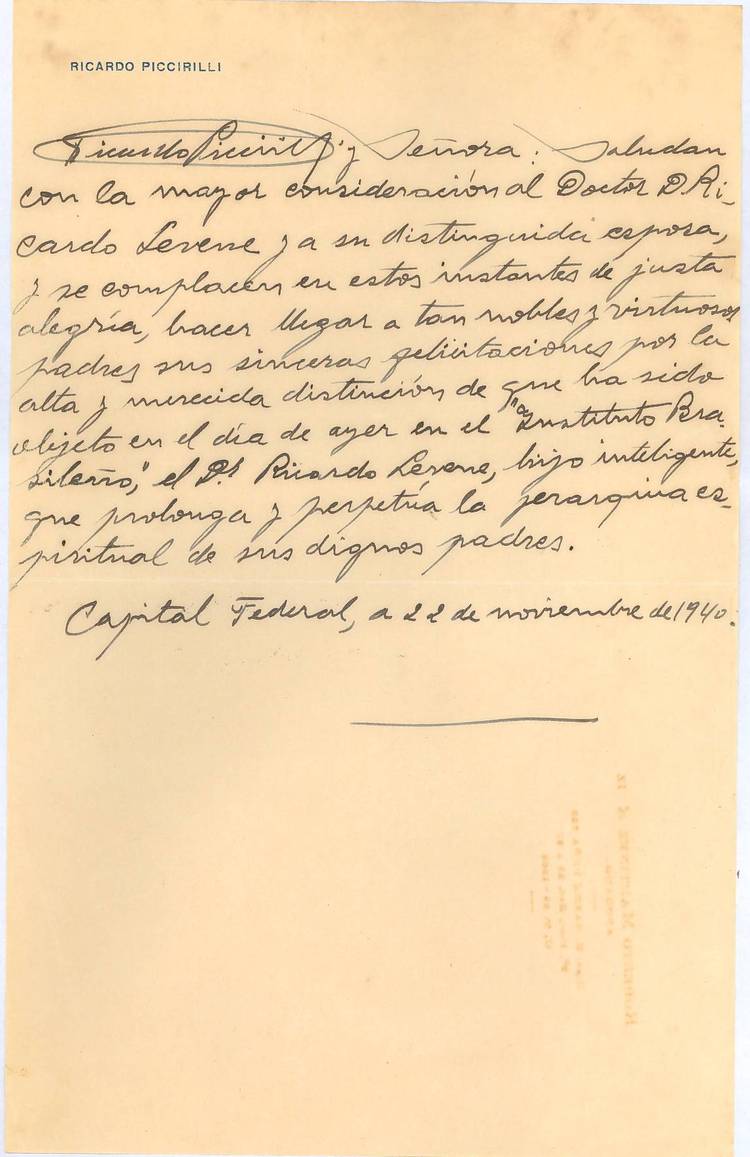 RICARDO PICCIRILLI
Ricardo Piccirilli y Señora: Saludan
con la mayor consideración al Doctor D. Ri-
cardo Levene y a su distinguida esposa,
y se complacen en estos instantes de justa
alegría, hacer llegar a tan nobles y virtuosos
padres sus sinceras felicitaciones por la
alta y merecida distinción de que ha sido
objeto en el día de ayer en el "Instituto Bra-
sileño," el Dr. Ricardo Levene, hijo inteligente,
que prolonga y perpetúa la jerarquia es-
piritual de sus dignos padres.
Capital Federal, a 22 de noviembre de 1940.